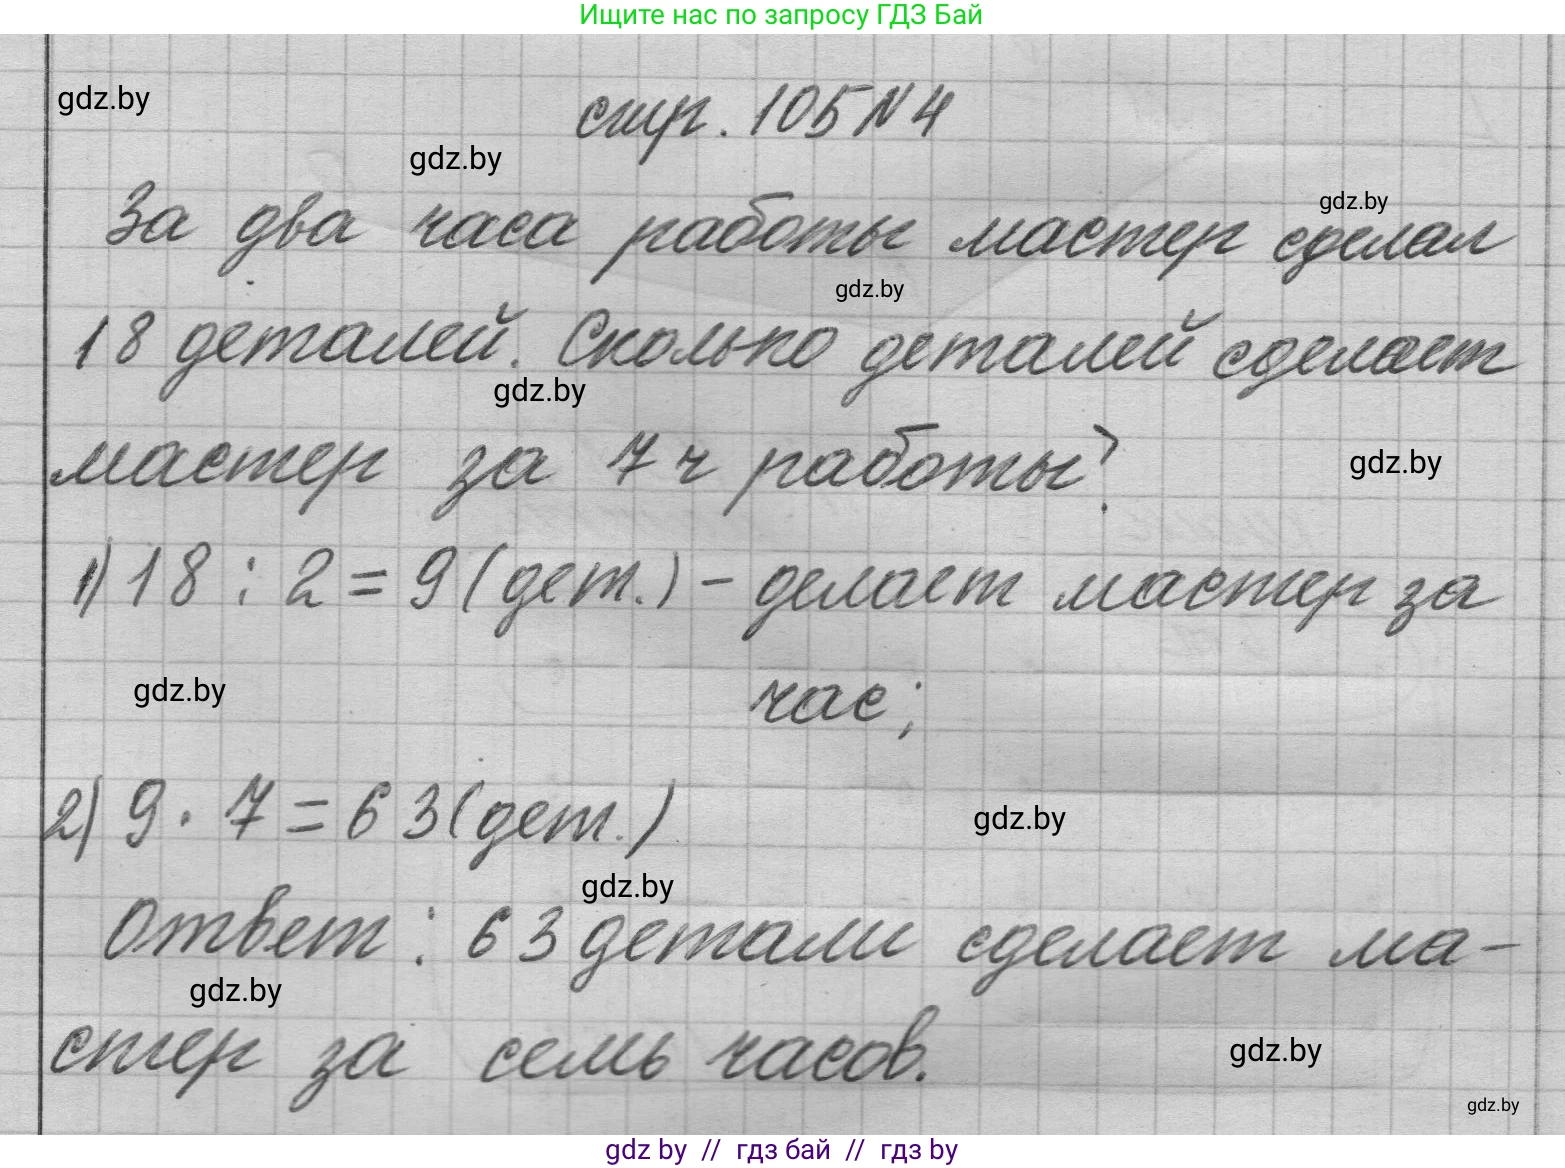 Ищите нас по запросу ГДЗ Бай
gdz.by
стр. 105 N 4
gdz.by
gdz.by
За два часа работы мастер сделал
gdz.by
18 деталей. Сколько деталей сделает
gdz.by
мастер за 7 ч работы?
gdz.by
1) 18 : 2 = 9 (дет.) - делает мастер за
час;
gdz.by
2) 9 · 7 = 63 (дет.)
gdz.by
gdz.by
Ответ : 63 детали сделает ма-
gdz.by
стер за семь часов.
gdz.by
gdz.by
gdz by // гдз бай // гдз by